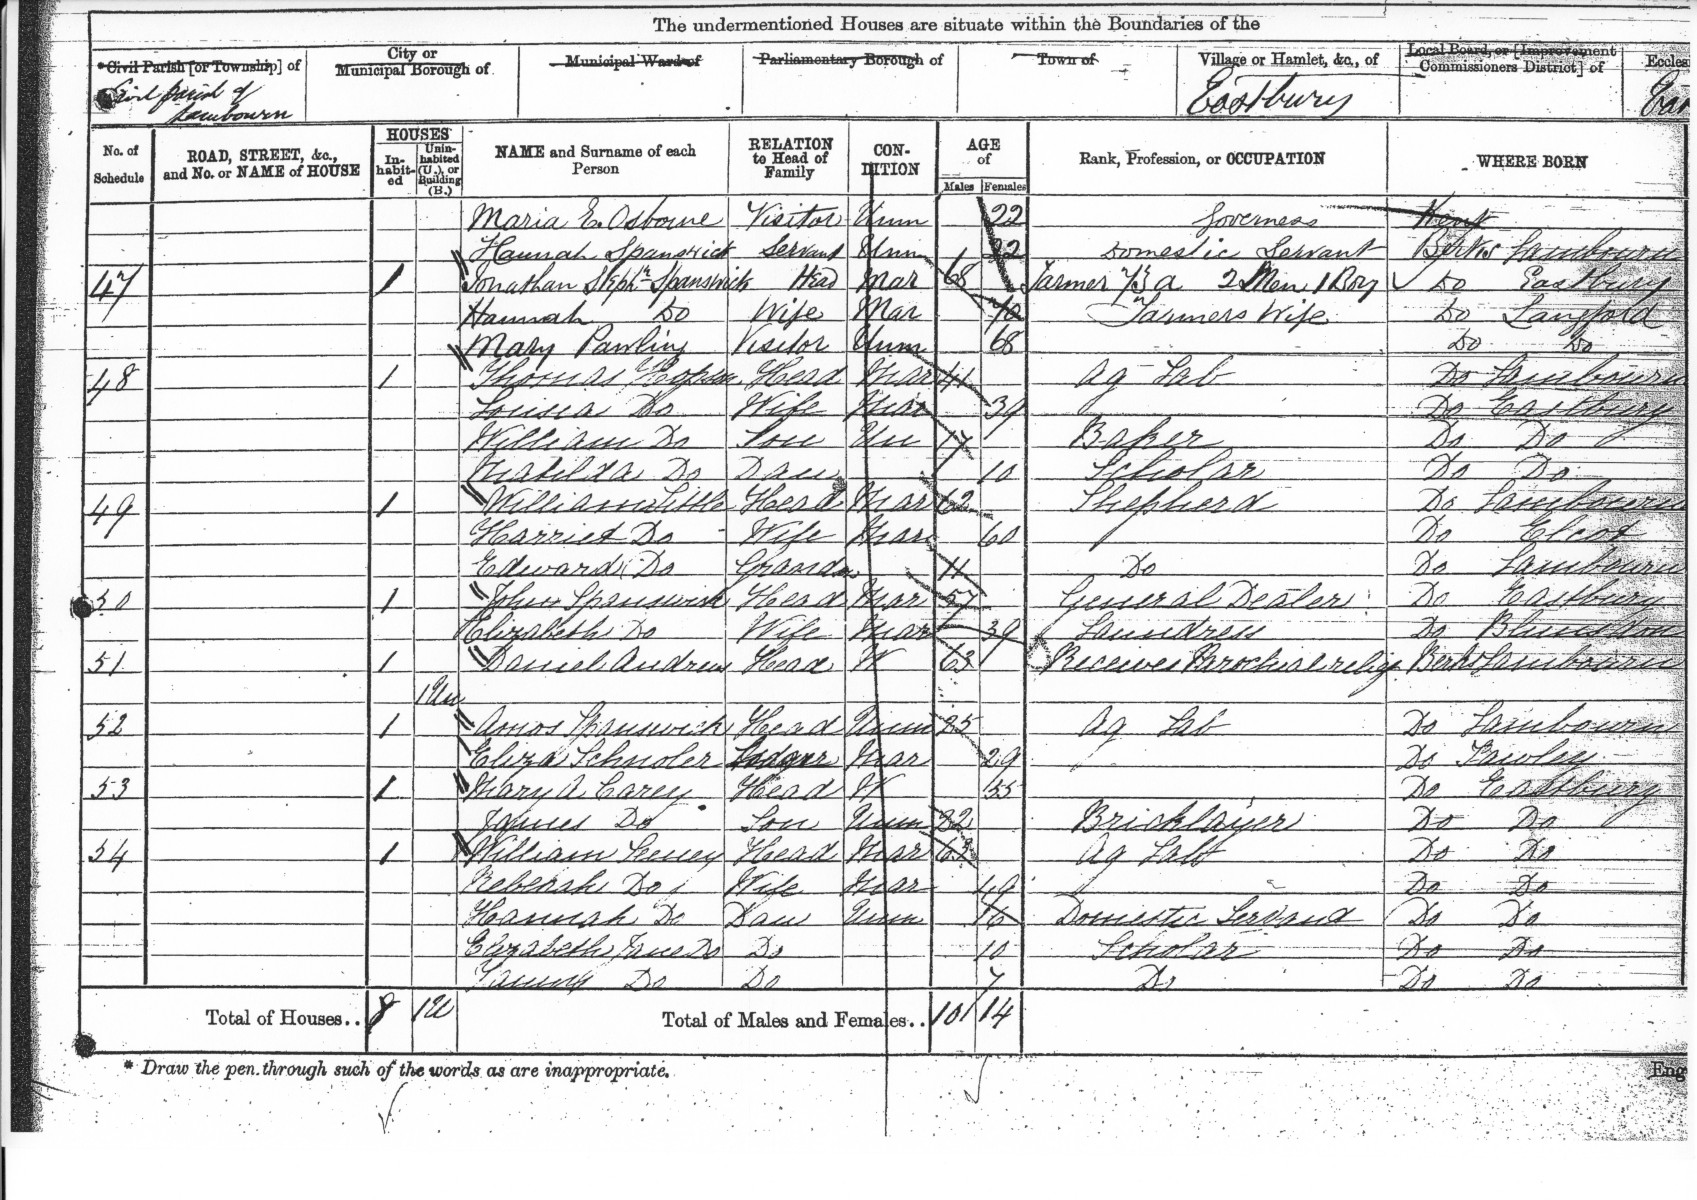 The undermentioned Houses are situate within the Boundaries of the
*Civil Parish [or Township] of
City or Municipal Borough of
Municipal Ward of
Parliamentary Borough of
Town of
Village or Hamlet, &c., of
Local Board, or [Improvement Commissioners District] of
Eccles
Civil Parish of Lambourn
Eastbury
No. of Schedule
ROAD, STREET, &c., and No. or NAME of HOUSE
HOUSES
In-habit-ed
Unin-habited (U.), or Building (B.)
NAME and Surname of each Person
RELATION to Head of Family
CON-DITION
AGE of
Males
Females
Rank, Profession, or OCCUPATION
WHERE BORN
Maria E. Osborne Visitor Unm 22 Governess Kent
Hannah Spanswick Servant Unm 22 Domestic Servant Berks Lambourn
47 1 Jonathan Steph'n Spanswick Head Mar 68 Farmer a 2 Men 1 Boy Do Eastbury
Hannah Do Wife Mar Farmers Wife Do Langford
Mary Pawling Visitor Unm 68 Do Do
48 1 Thomas Head Mar 41 Ag Lab Do Lambourn
Louisa Do Wife Mar 39 Do Eastbury
William Do Son Un 17 Baker Do Do
Matilda Do Dau 10 Scholar Do Do
49 1 William Little Head Mar 62 Shepherd Do Lambourn
Harriet Do Wife Mar 60 Do Elcot
Edward Do Grandson 11 Do Do Lambourn
50 1 John Spanswick Head Mar 57 General Dealer Do Eastbury
Elizabeth Do Wife Mar 39 Laundress Do
51 1 Daniel Andrews Head W 63 Receives Parochial relief Berks Lambourn
1 Un
52 1 Amos Spanswick Head Unm 25 Ag Lab Do Lambourn
Eliza Lodger Mar 29 Do Fawley
53 1 Mary A Carey Head W 55 Do Eastbury
James Do Son Unm 22 Bricklayer Do Do
54 1 William Head Mar 63 Ag Lab Do Do
Rebekah Do Wife Mar 49 Do Do
Hannah Do Dau Unm 16 Domestic Servant Do Do
Elizabeth Jane Do Do 10 Scholar Do Do
Fanny Do Do 7 Do Do Do
Total of Houses.. 8 1 U
Total of Males and Females.. 10 14
* Draw the pen through such of the words as are inappropriate.
Eng